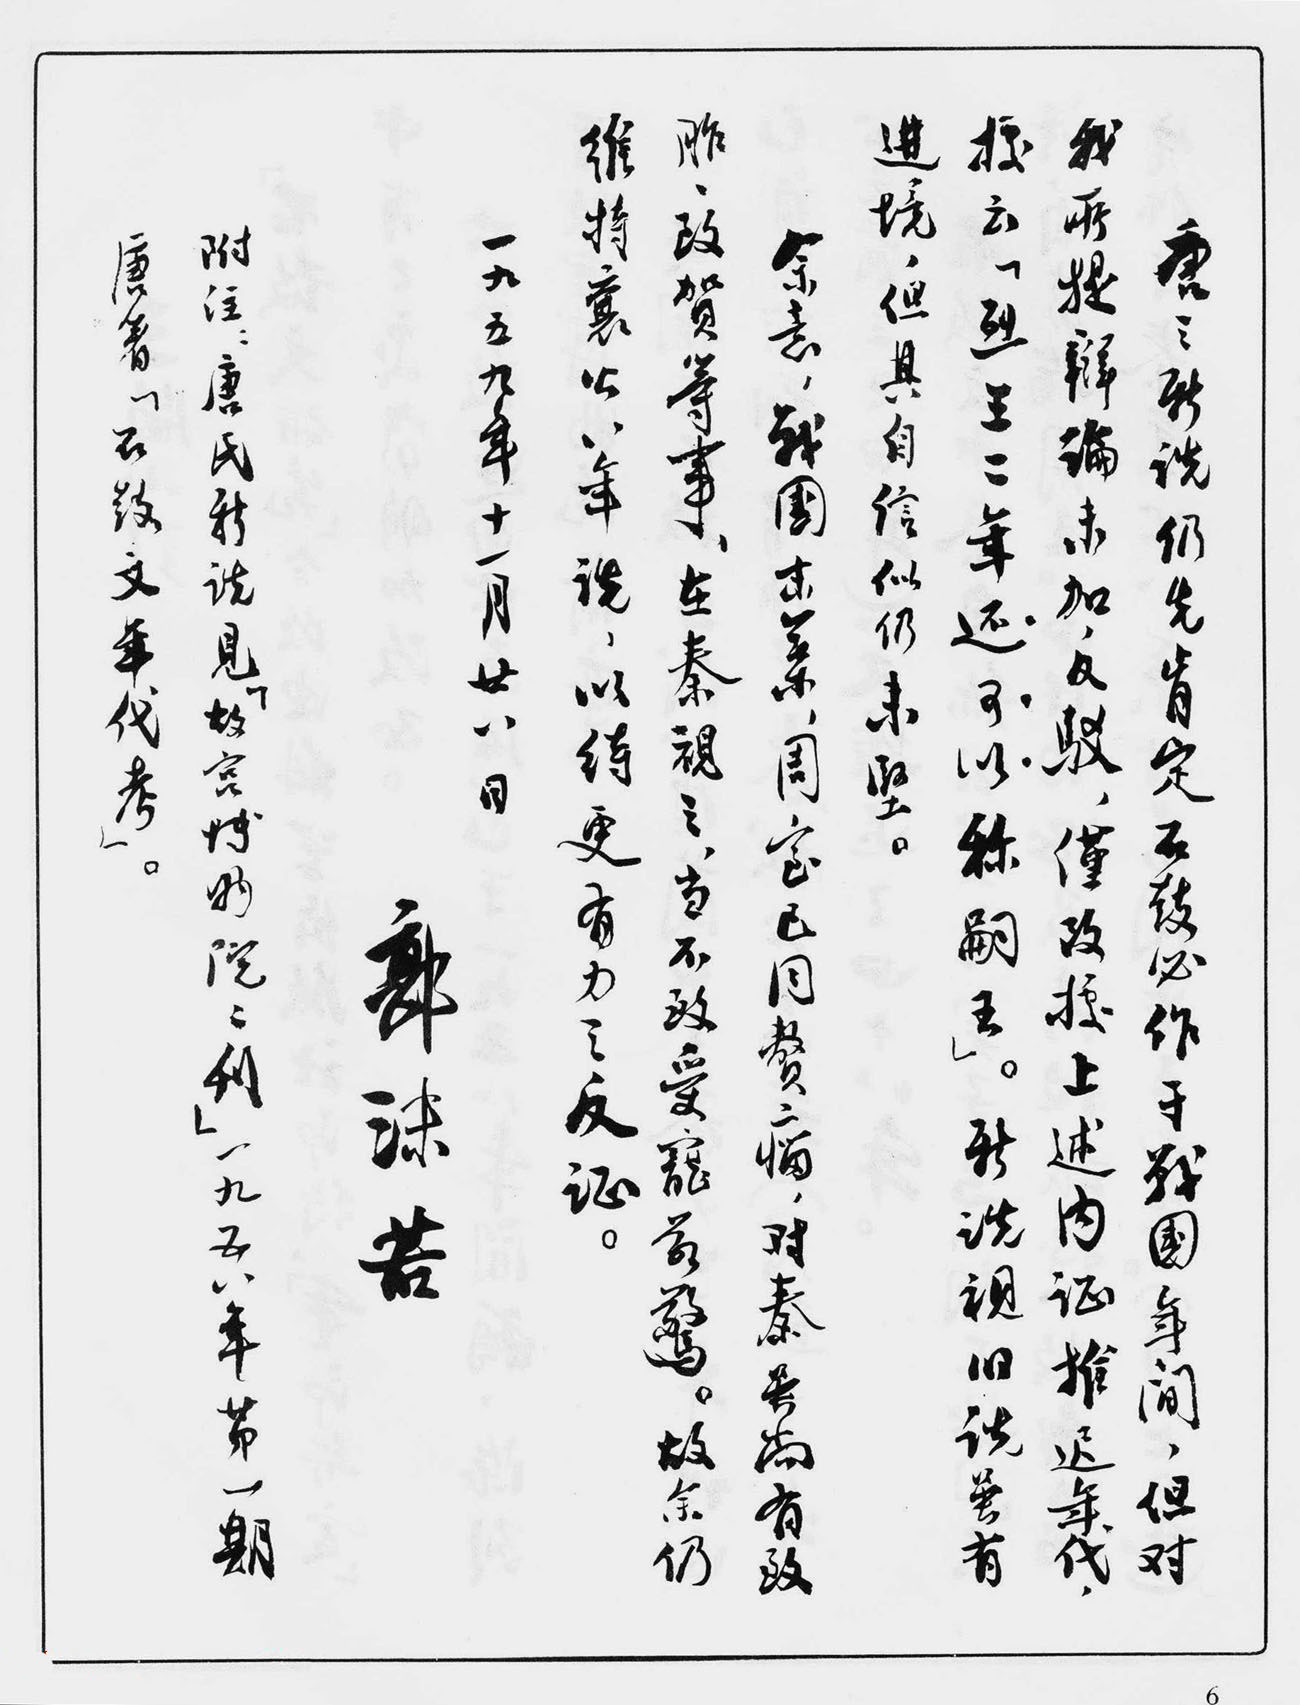 唐之新说仍先肯定石鼓必作于战国年间，但对
我所提辩论未加反驳，仅改据上述内证推迟年代，
据云「烈王二年还可以称嗣王」。新说视旧说虽有
进境，但其自信似仍未坚。
余意，战国末叶，周室已同赘瘤，对秦虽尚有致
胙、致贺等事，在秦视之，当不致受宠若惊。故余仍
维持襄公八年说，以待更有力之反证。
一九五九年十一月廿八日
郭沫若
附注：唐氏新说见「故宫博物院々刊」一九五八年第一期
唐著「石鼓文年代考」。
6